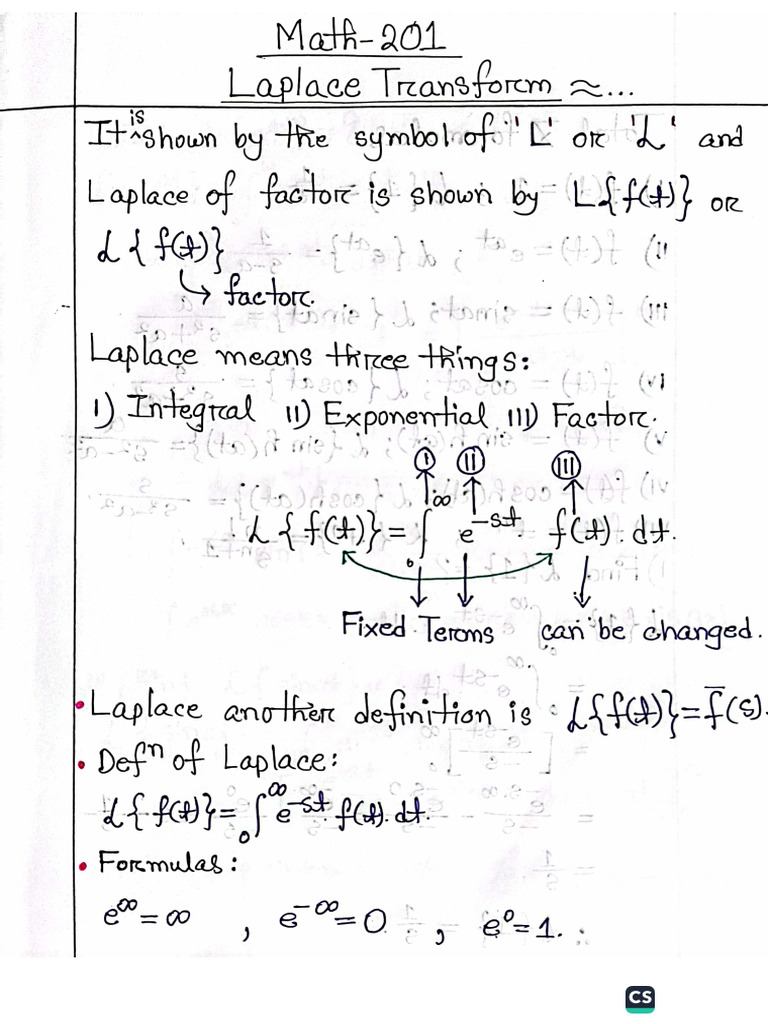 Math-201
Laplace Transform ≈...
It is shown by the symbol of 'L' or 'ℒ' and
Laplace of factor is shown by L{f(t)} or
ℒ{f(t)}
↳ factor.
Laplace means three things:
I) Integral II) Exponential III) Factor.
I II III
ℒ{f(t)} = ∫₀^∞ e^-st. f(t). dt.
Fixed Terms can be changed.
• Laplace another definition is : ℒ{f(t)} = f̅(s).
• Defⁿ of Laplace:
ℒ{f(t)} = ₀∫^∞ e^-st. f(t). dt.
• Formulas:
e^∞ = ∞ , e^-∞ = 0 , e^0 = 1.
CS